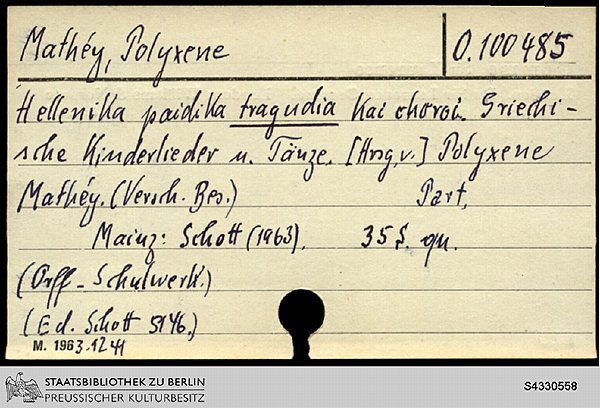 Mathéy, Polyxene
O. 100 485
Hellenika paidika tragudia kai choroi. Griechi-
sche Kinderlieder u. Tänze. [Hrsg. v.] Polyxene
Mathéy. (Versch. Bes.) Part.
Mainz: Schott (1963). 35 S. qu.
(Orff-Schulwerk.)
(Ed. Schott 5146.)
M. 1963.1241
STAATSBIBLIOTHEK ZU BERLIN
PREUSSISCHER KULTURBESITZ
S4330558